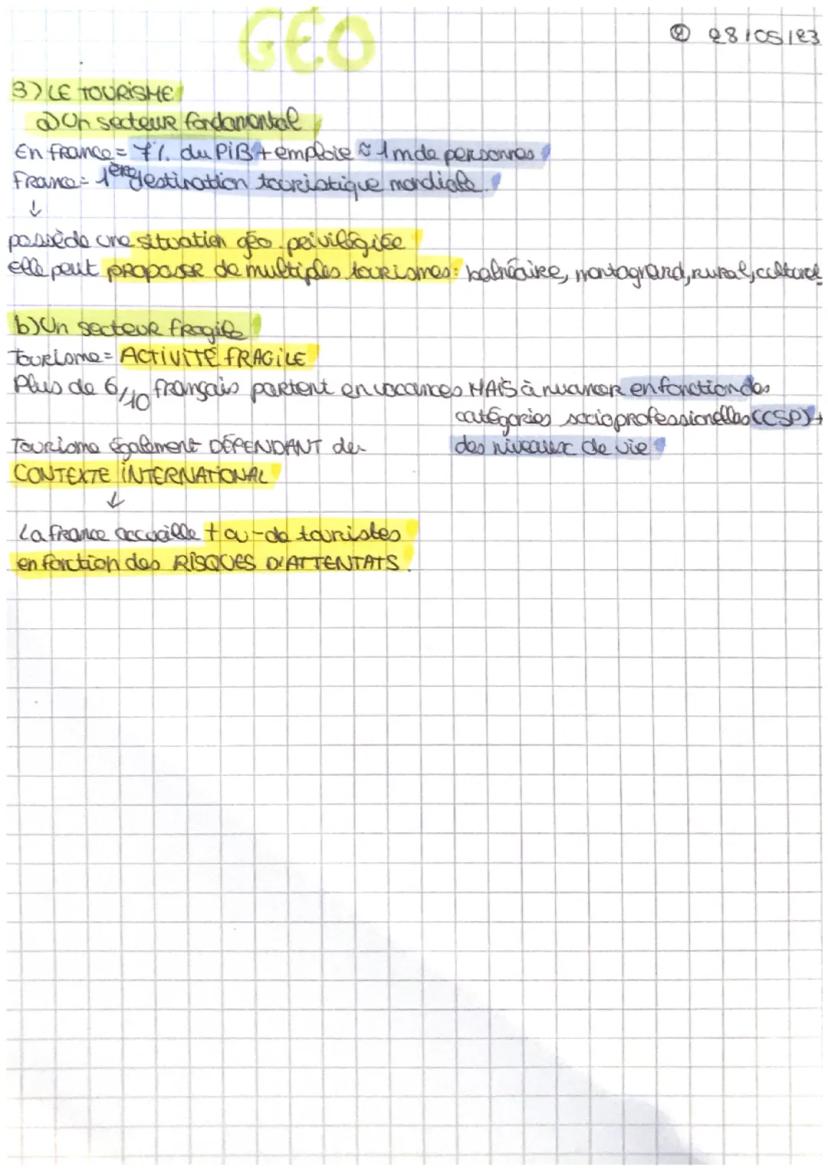 GÉO
② 28/05/23
3) LE TOURISME
a) Un secteur fondamental
En france = 7% du PiB + emploie ≈ 1 m de personnes
France = 1ère destination touristique mondiale.
↓
possède une situation géo. privilégiée
elle peut PROPOSER de multiples tourismes: balnéaire, montagnard, rural, culturel
b) Un secteur fragile
Tourisme = ACTIVITÉ FRAGILE
Plus de 6/10 français partent en vacances MAIS à nuancer en fonction des
catégories socioprofessionelles (CSP) +
des niveaux de vie
Tourisme également DÉPENDANT du
CONTEXTE INTERNATIONAL
↓
La france accueille + ou - de touristes
en fonction des RISQUES D'ATTENTATS.